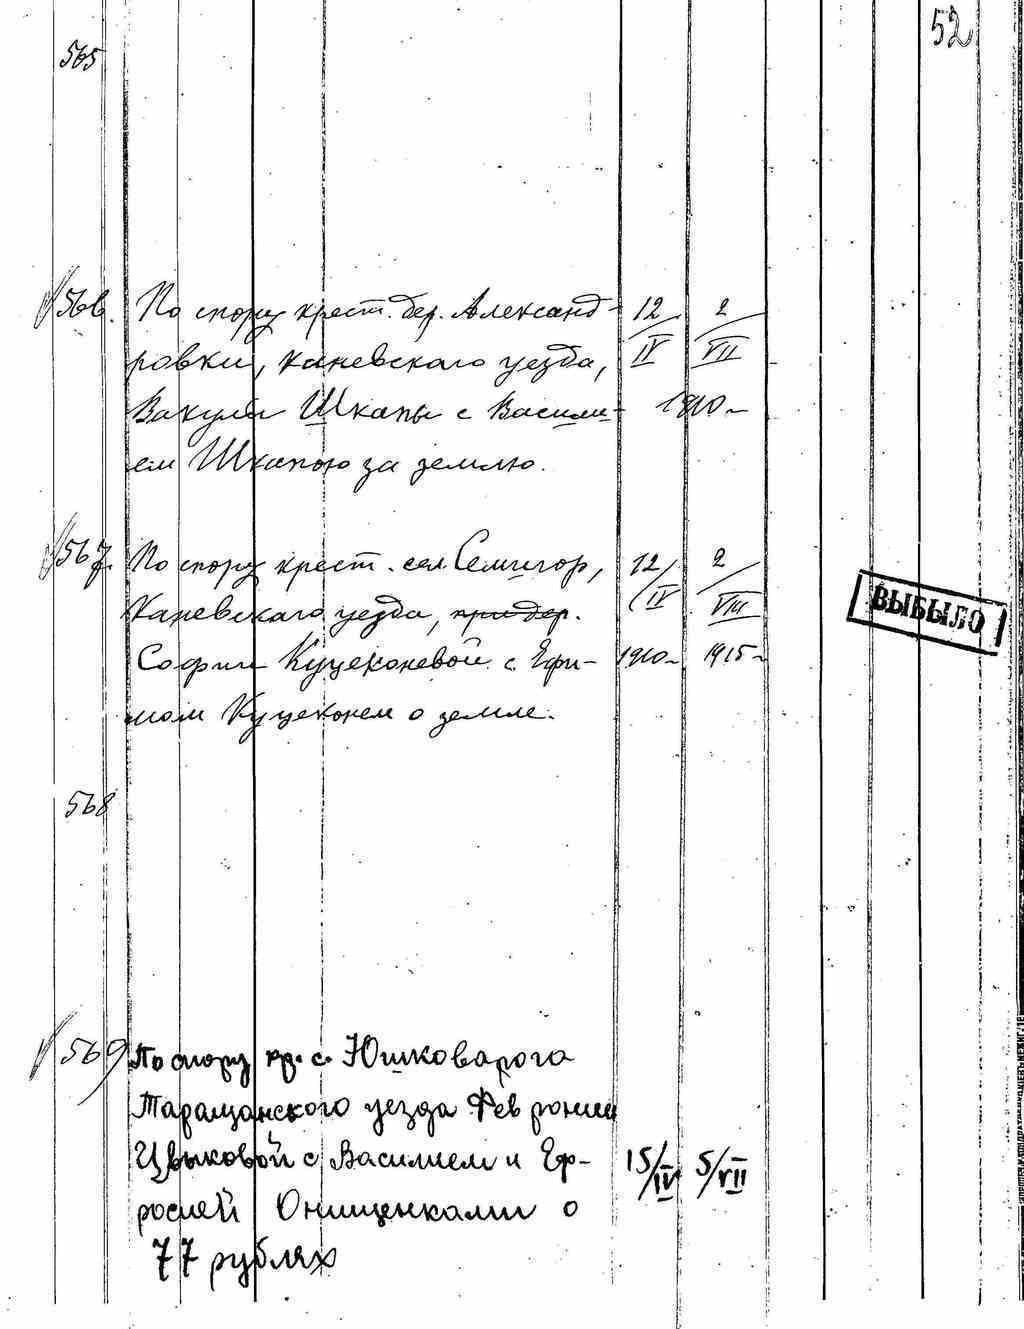 52
565
566. По спору крест. дер. Александ- 12/IV 2/VII
ровки, Каневскаго уезда,
Вакулы Шкапы с Васили- 1910
ем Шкапою за землю.
567. По спору крест. сел. Семигор, 12/IV 2/VIII
Каневскаго уезда,
Софии Куцеконевой с Ефи- 1910 1915
мом Куцеконем о земле.
ВЫБЫЛО
568
569 По спору кр. с. Юшковарога
Таращанского уезда Февронии
Цвыковой с Василием и Еф- 15/IV 5/VII
росией Онищенками о
77 рублях